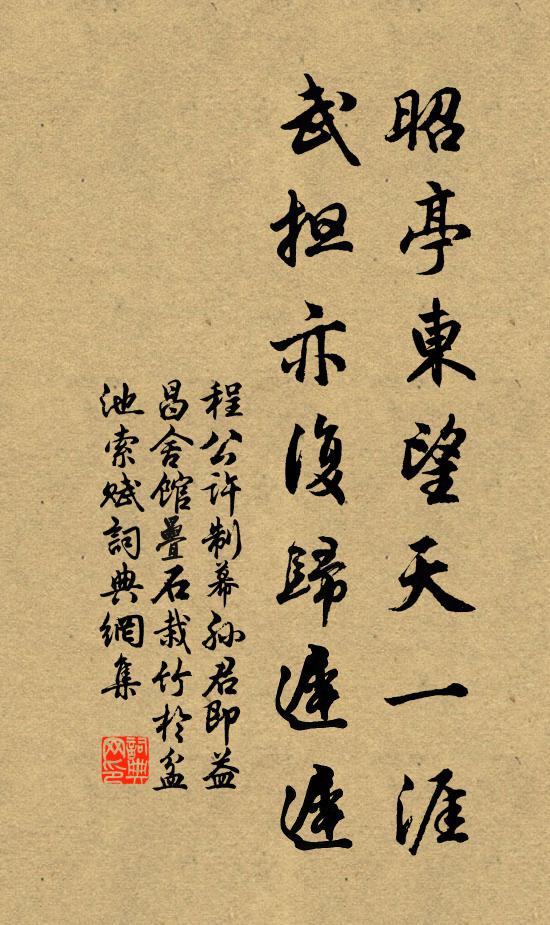 昭亭東望天一涯
武担亦復歸遲遲
程公許制幕孫君即益
昌舍館疊石栽竹於盆
池索賦詞典網集
詞典
网印